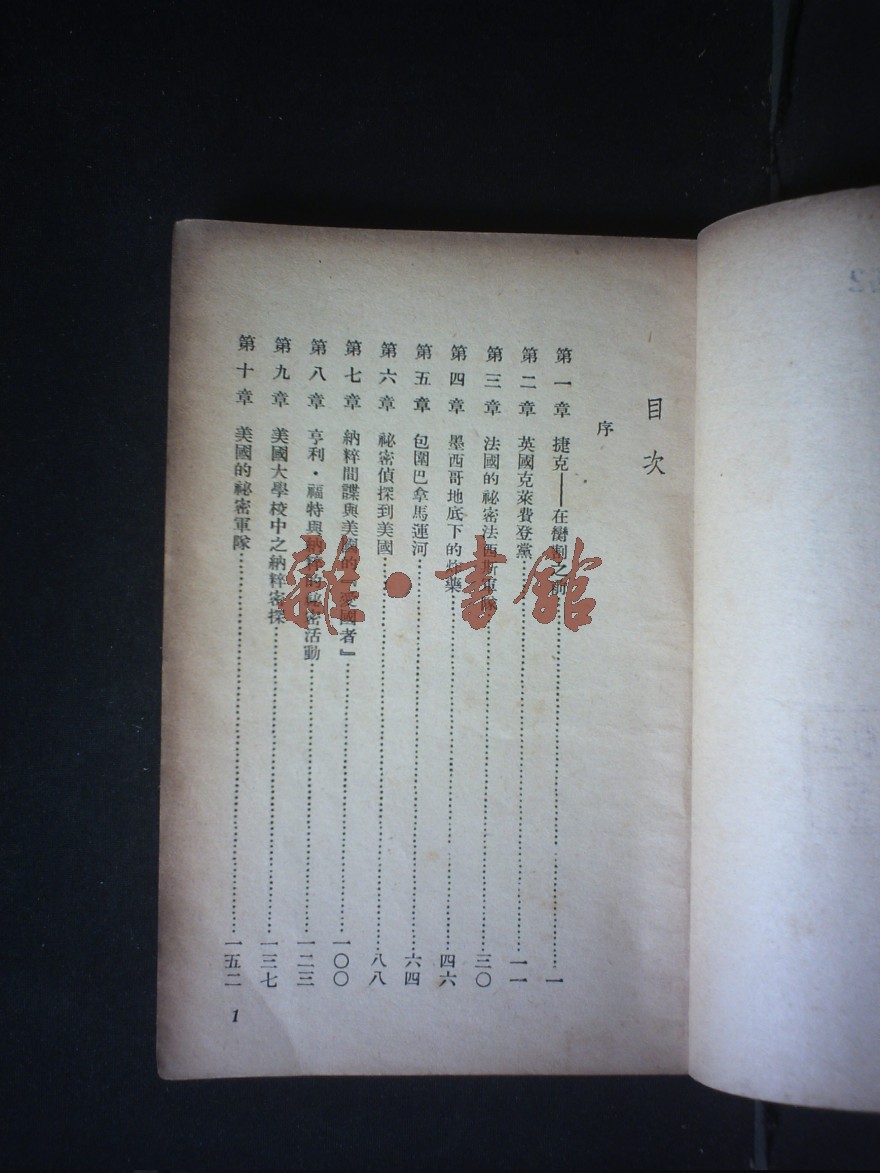 目次
序
第一章 捷克——在臠割之前…………一
第二章 英國克萊費登黨…………一一
第三章 法國的祕密法西斯軍隊…………三〇
第四章 墨西哥地底下的炸藥…………四六
第五章 包圍巴拿馬運河…………六四
第六章 祕密偵探到美國…………八八
第七章 納粹間諜與美國的『愛國者』…………一〇〇
第八章 亨利·福特與納粹的祕密活動…………一二三
第九章 美國大學校中之納粹密探…………一三七
第十章 美國的祕密軍隊…………一五二
1
雜·書館